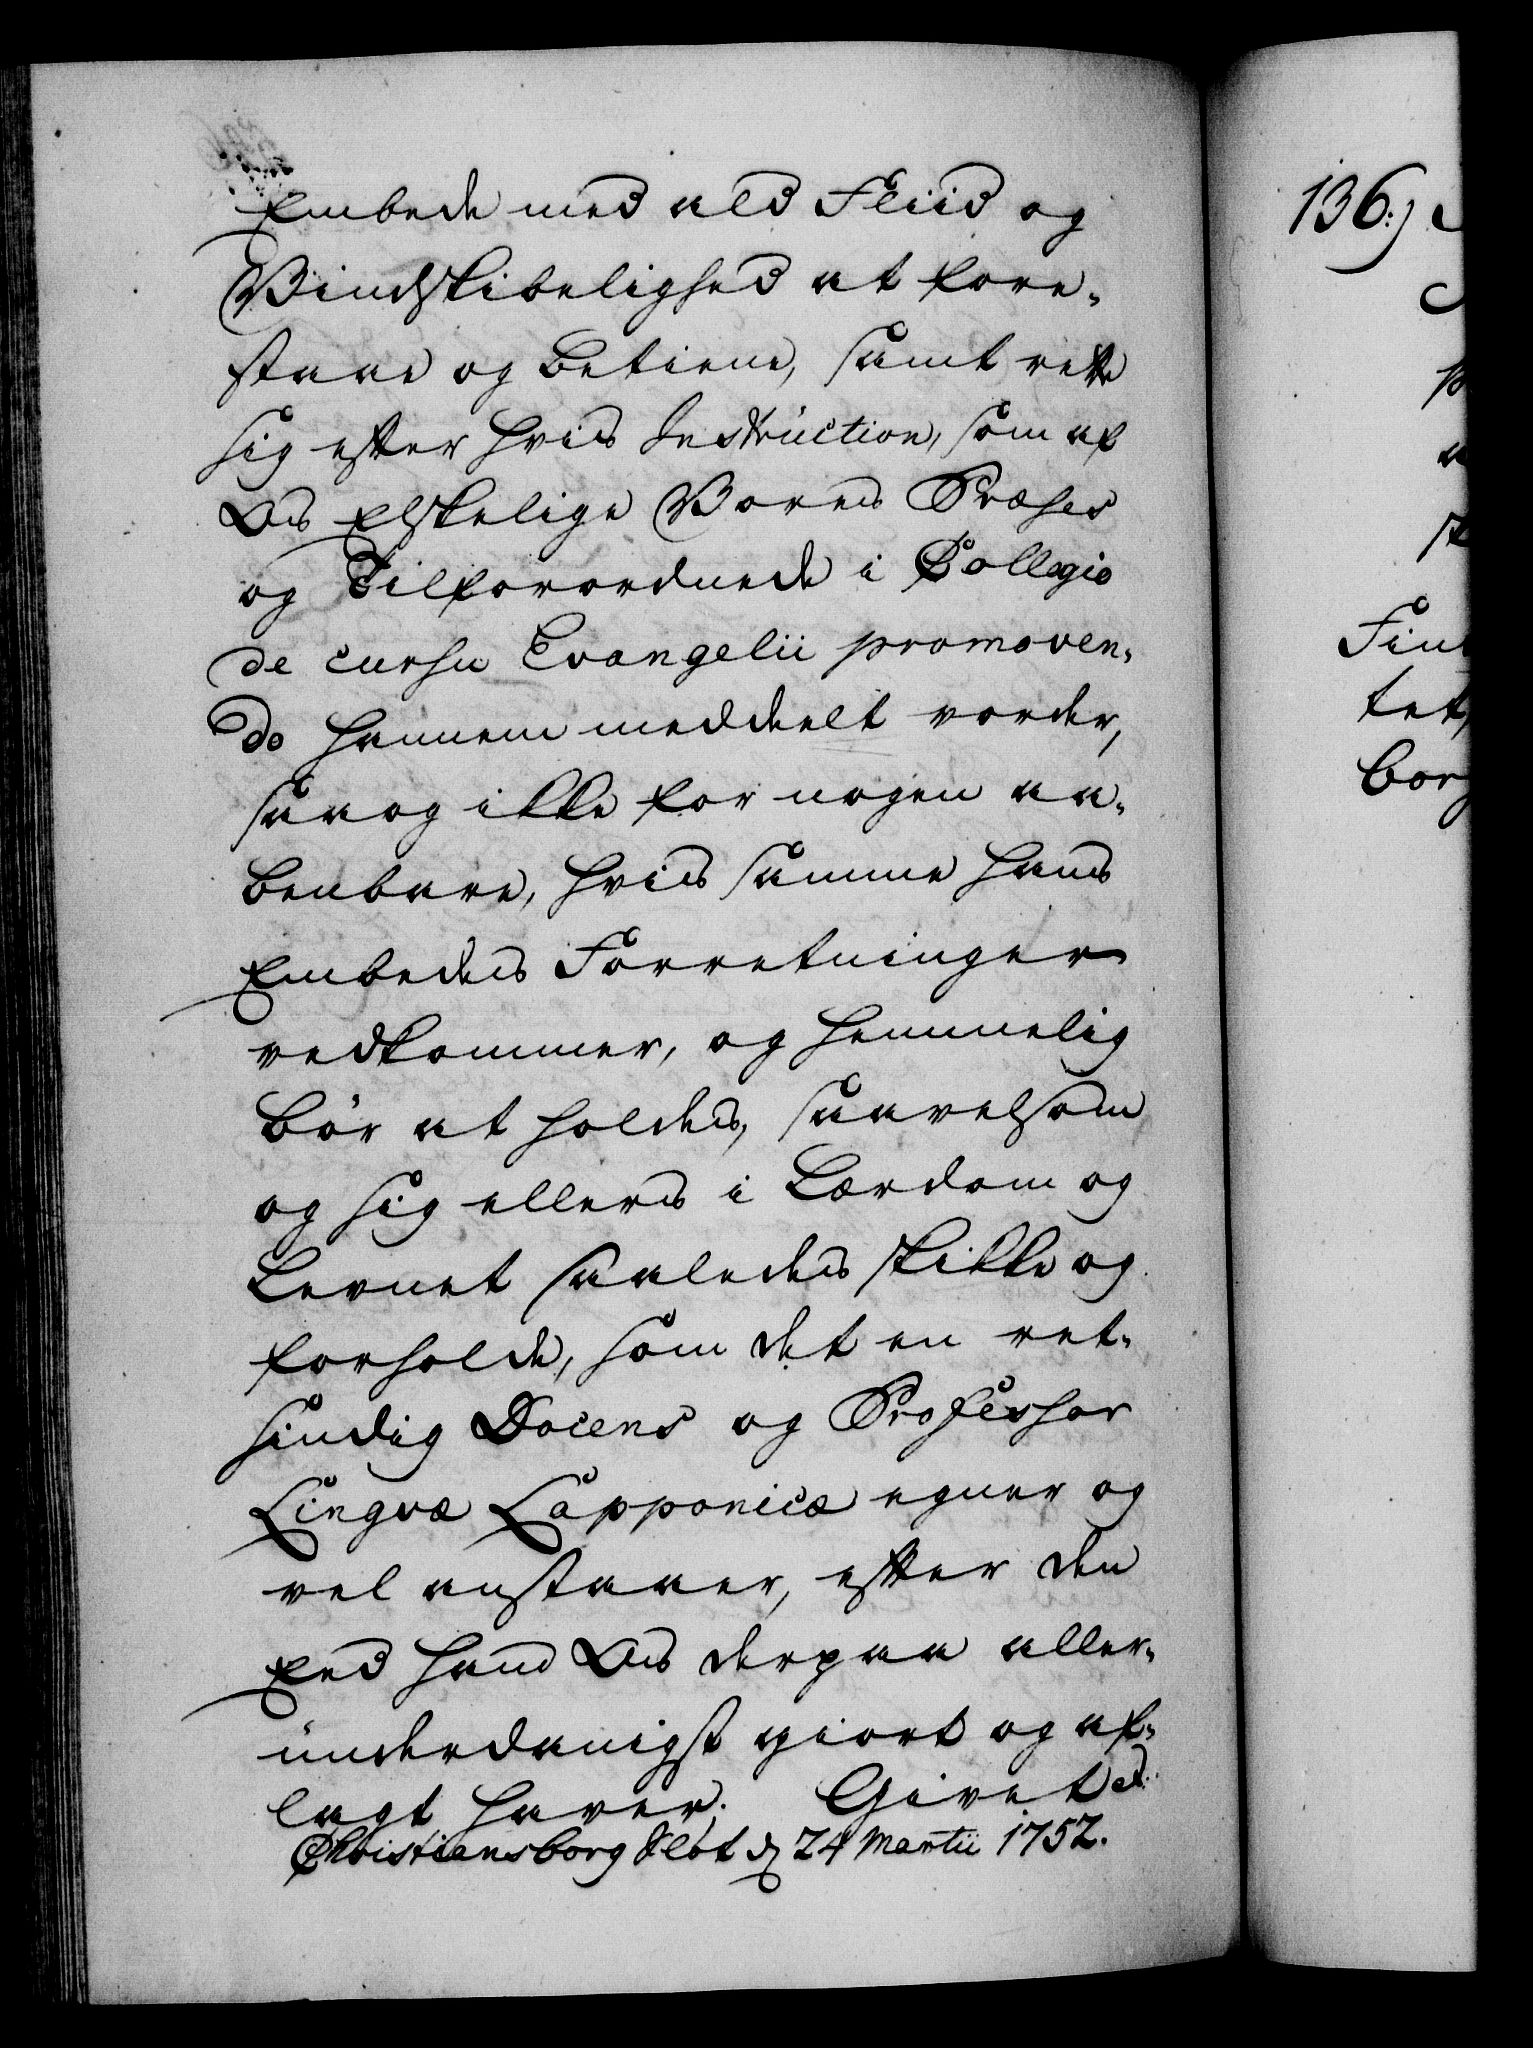 Embede med ald Fliid og
Vindskibelighed at fore-
staae og betiene, samt rette
sig efter hvis Instruction, som af
Os Elskelige Vores Præses
og Tilforordnede i Collegio
de cursu Evangelii promoven-
do hannem meddeelt vorder,
saa og ikke for nogen aa-
benbare, hvis samme hans
Embedes Forretninger
vedkommer, og hemmelig
bör at holdes, saavelsom
og sig ellers i Lærdom og
Levnet saaledes skikke og
forholde, som det en ret-
sindig Docens og Professor
Lingvæ Lapponicæ egner og
vel anstaaer, efter den
Eed hand Os derpaa aller-
underdanigst giort og af-
lagt haver. Givet etc:
Christiansborg Slot d 24 Martii 1752.
136.)
Fin
tet,
borg